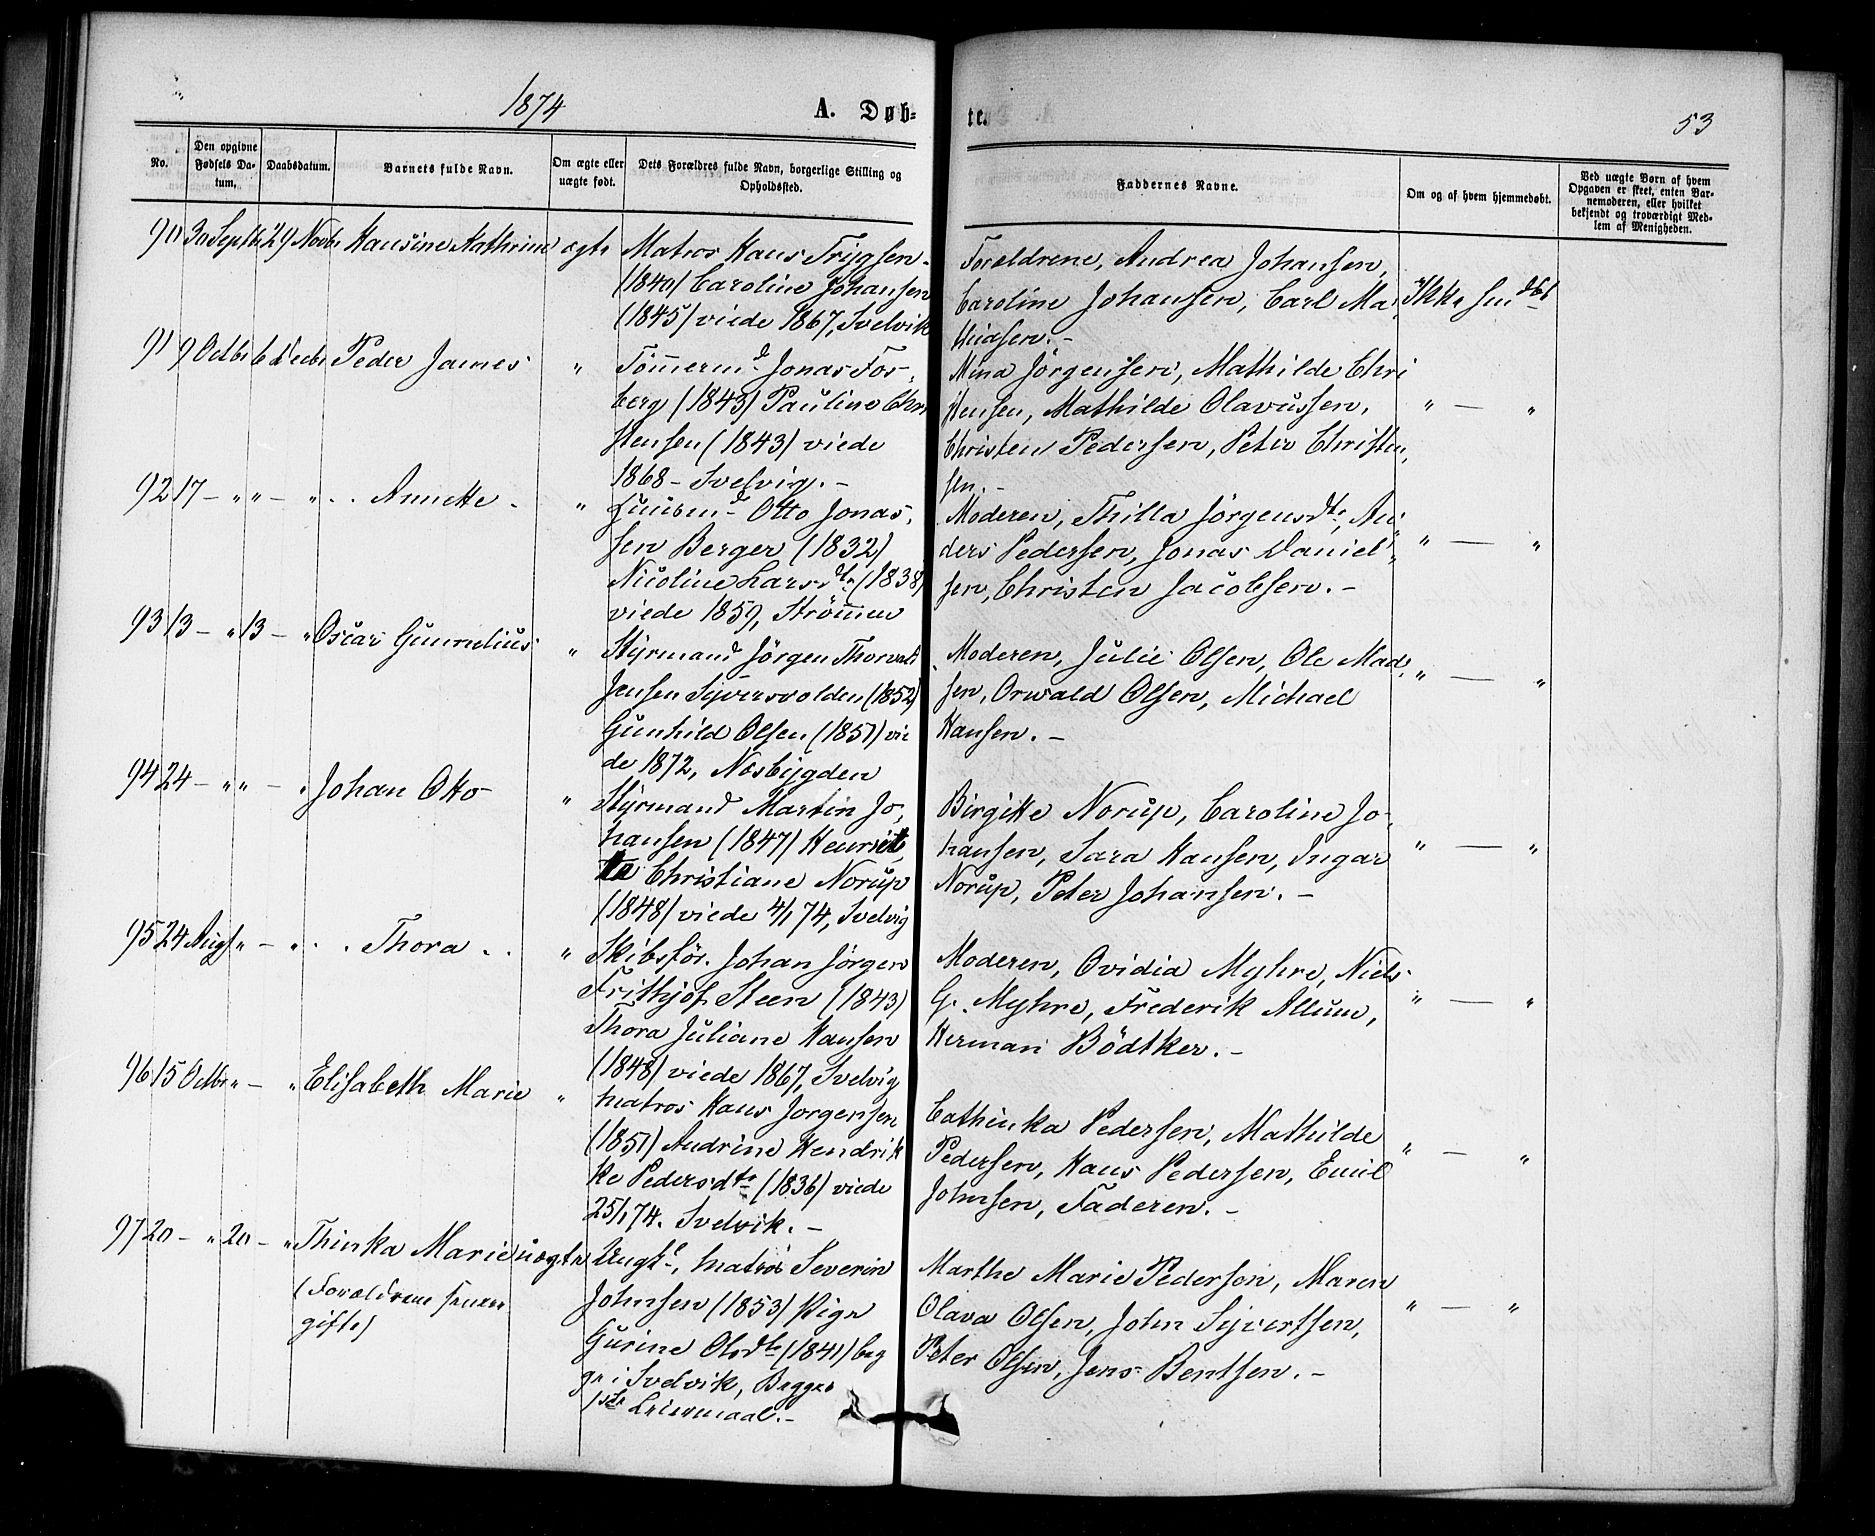 1874
A. Døb-
te.
53
No.
Den opgivne Fødsels Datum.
Daabsdatum.
Barnets fulde Navn.
Om ægte eller uægte født.
Dets Forældres fulde Navn, borgerlige Stilling og Opholdssted.
Faddernes Navne.
Om og af hvem hjemmedøbt.
Ved uægte Børn af hvem Opgaven er skeet, enten Barnemoderen, eller hvilket bekjendt og troværdigt Medlem af Menigheden.
90 30 Septbr 29 Novbr Hansine Kathrine ægte Matros Hans Trygsen
(1840) Caroline Johansen
(1845) viede 1867, Svelvik
Forældrene, Andrea Johansen,
Caroline Johansen, Carl Ma-
thiasen. -
Ikke hmdbt
91 9 Octbr 6 Decbr Peder James " Tömermd Jonas Fos-
berg (1843) Pauline Chri
stensen (1843) viede
1868 - Svelvig. -
Mina Jörgensen, Mathilde Chri
stensen, Mathilde Olavussen,
Christen Pedersen, Peter Christen-
sen. -
" — "
92 17 - " " - " . . Annette - " Huusmd Otto Jonas-
sen Berger (1832)
Nicoline Larsdtr (1838)
viede 1859, Strömen
Moderen, Thilla Jörgensdtr, An-
ders Pedersen, Jonas Daniel-
sen, Christen Jacobsen. -
" — "
93 13 - " 13 - " Oscar Gunnelius " Styrmand Jörgen Thorvald
Jensen Syversvolden (1852)
Gunhild Olsen (1851) vie
de 1872, Nesbygden
Moderen, Julie Olsen, Ole Mad-
sen, Orwald Olsen, Michael
Hansen. -
" — "
94 24 - " " - " Johan Otto " Styrmand Martin Jo-
hansen (1847) Henriet-
te Christiane Norup
(1848) viede 4/1 74, Svelvig
Birgitte Norup, Caroline Jo-
hansen, Sara Hansen, Ingar
Norup, Peter Johansen. -
" — "
95 24 Augs " - " . . Thora . . " Skibsför. Johan Jörgen
Frithjof Steen (1843)
Thora Juliane Hansen
(1848) viede 1867, Svelvig
Moderen, Ovidia Myhre, Niels
G. Myhre, Frederik Allum,
Herman Bödtker. -
" — "
96 15 Octbr " - " Elisabeth Marie " Matros Hans Jorgensen
(1851) Andrine Hendrik
ke Pedersdtr (1836) viede
25/1 74. Svelvik. -
Cathinka Pedersen, Mathilde
Pedersen, Hans Pedersen, Emil
Johnsen, Faderen. -
" — "
97 20 - " 20 - " Thinka Marie uægte Ungk., Matros Severin
(Forældrene senere
gifte)
Johnsen (1853) Pige
Gurine Olsdtr (1841) beg
ge i Svelvik, Begges
1ste Leiermaal. -
Marthe Marie Pederson, Maren
Olava Olsen, John Syvertsen,
Peter Olsen, Jens Bentsen. -
" — "